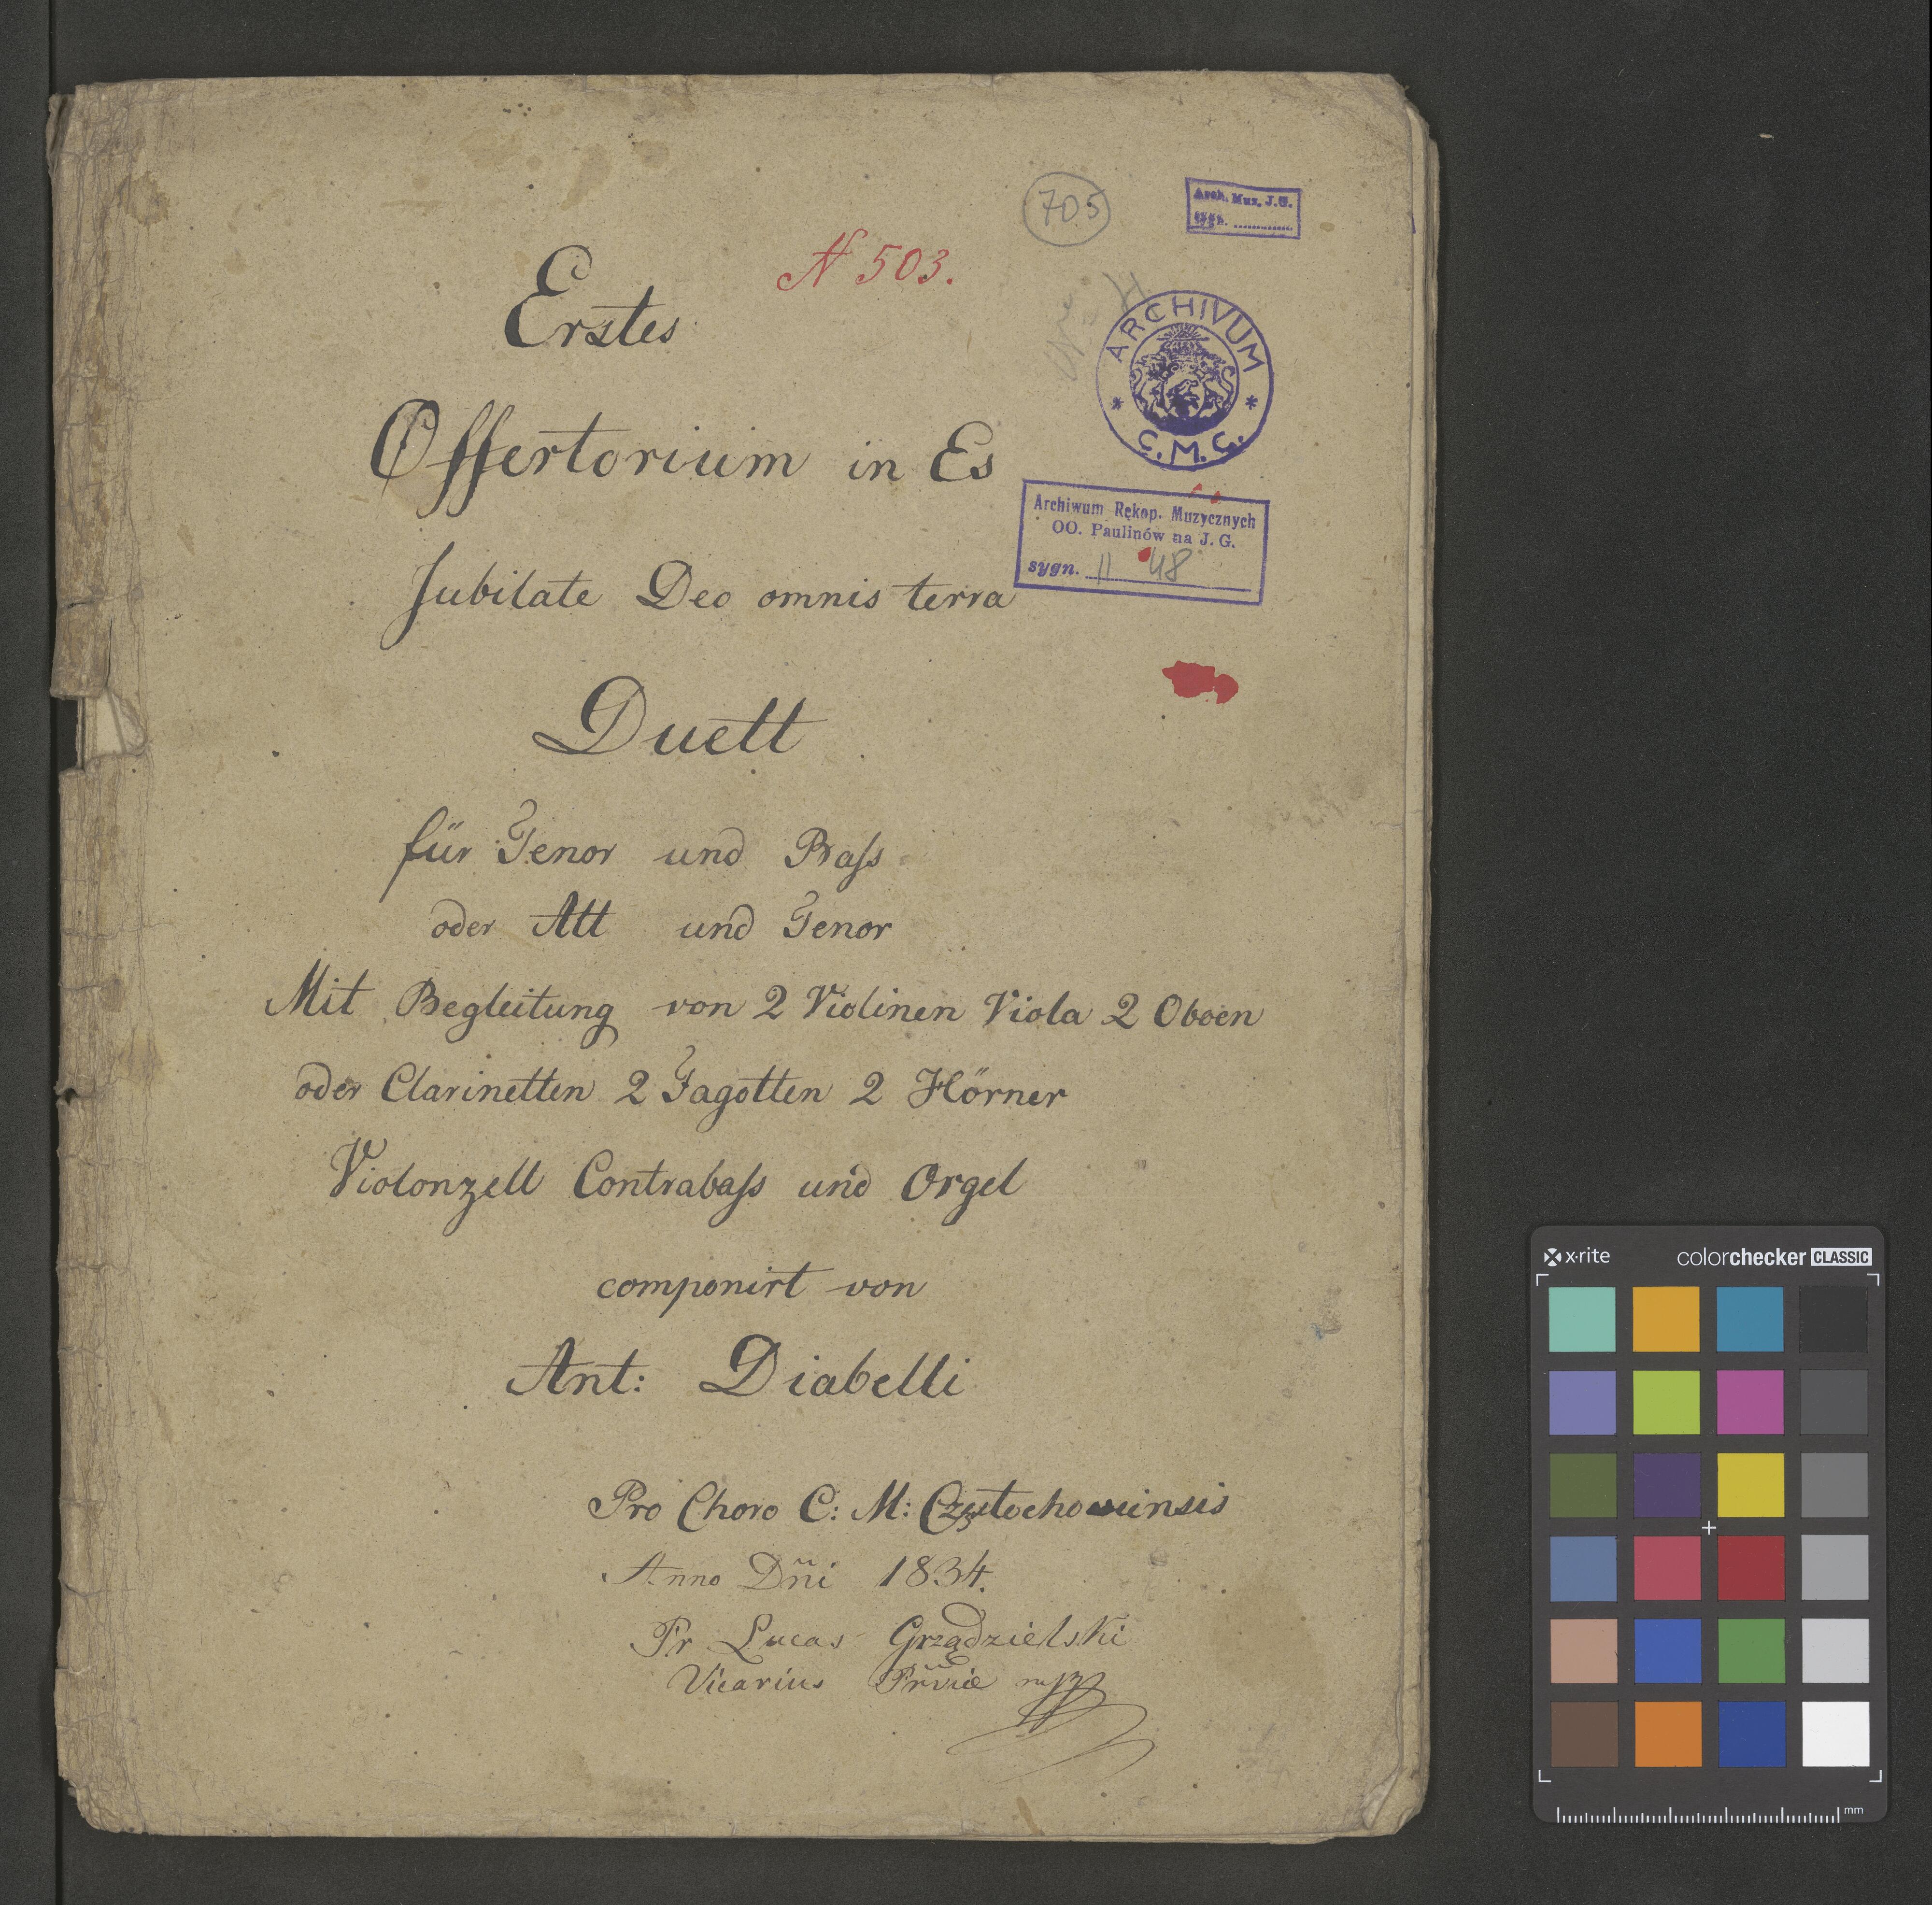 705
Arch. Muz. J.G.
sygn.
N 503.
Erstes
ARCHIVUM
C.M.C.
Offertorium in Es
Archiwum Rękop. Muzycznych
OO. Paulinów na J. G.
sygn. II 48
Jubilate Deo omnis terra
Duett
für Tenor und Baſs
oder Alt und Tenor
Mit Begleitung von 2 Violinen Viola 2 Oboen
oder Clarinetten 2 Fagotten 2 Hörner
Violonzell Contrabaſs und Orgel
componirt von
Ant: Diabelli
Pro Choro C: M: Częstochoviensis
Anno Dñi 1834.
Pr Lucas Grządzielski
Vicarius Prñviæ mpp
x·rite colorchecker CLASSIC
mm